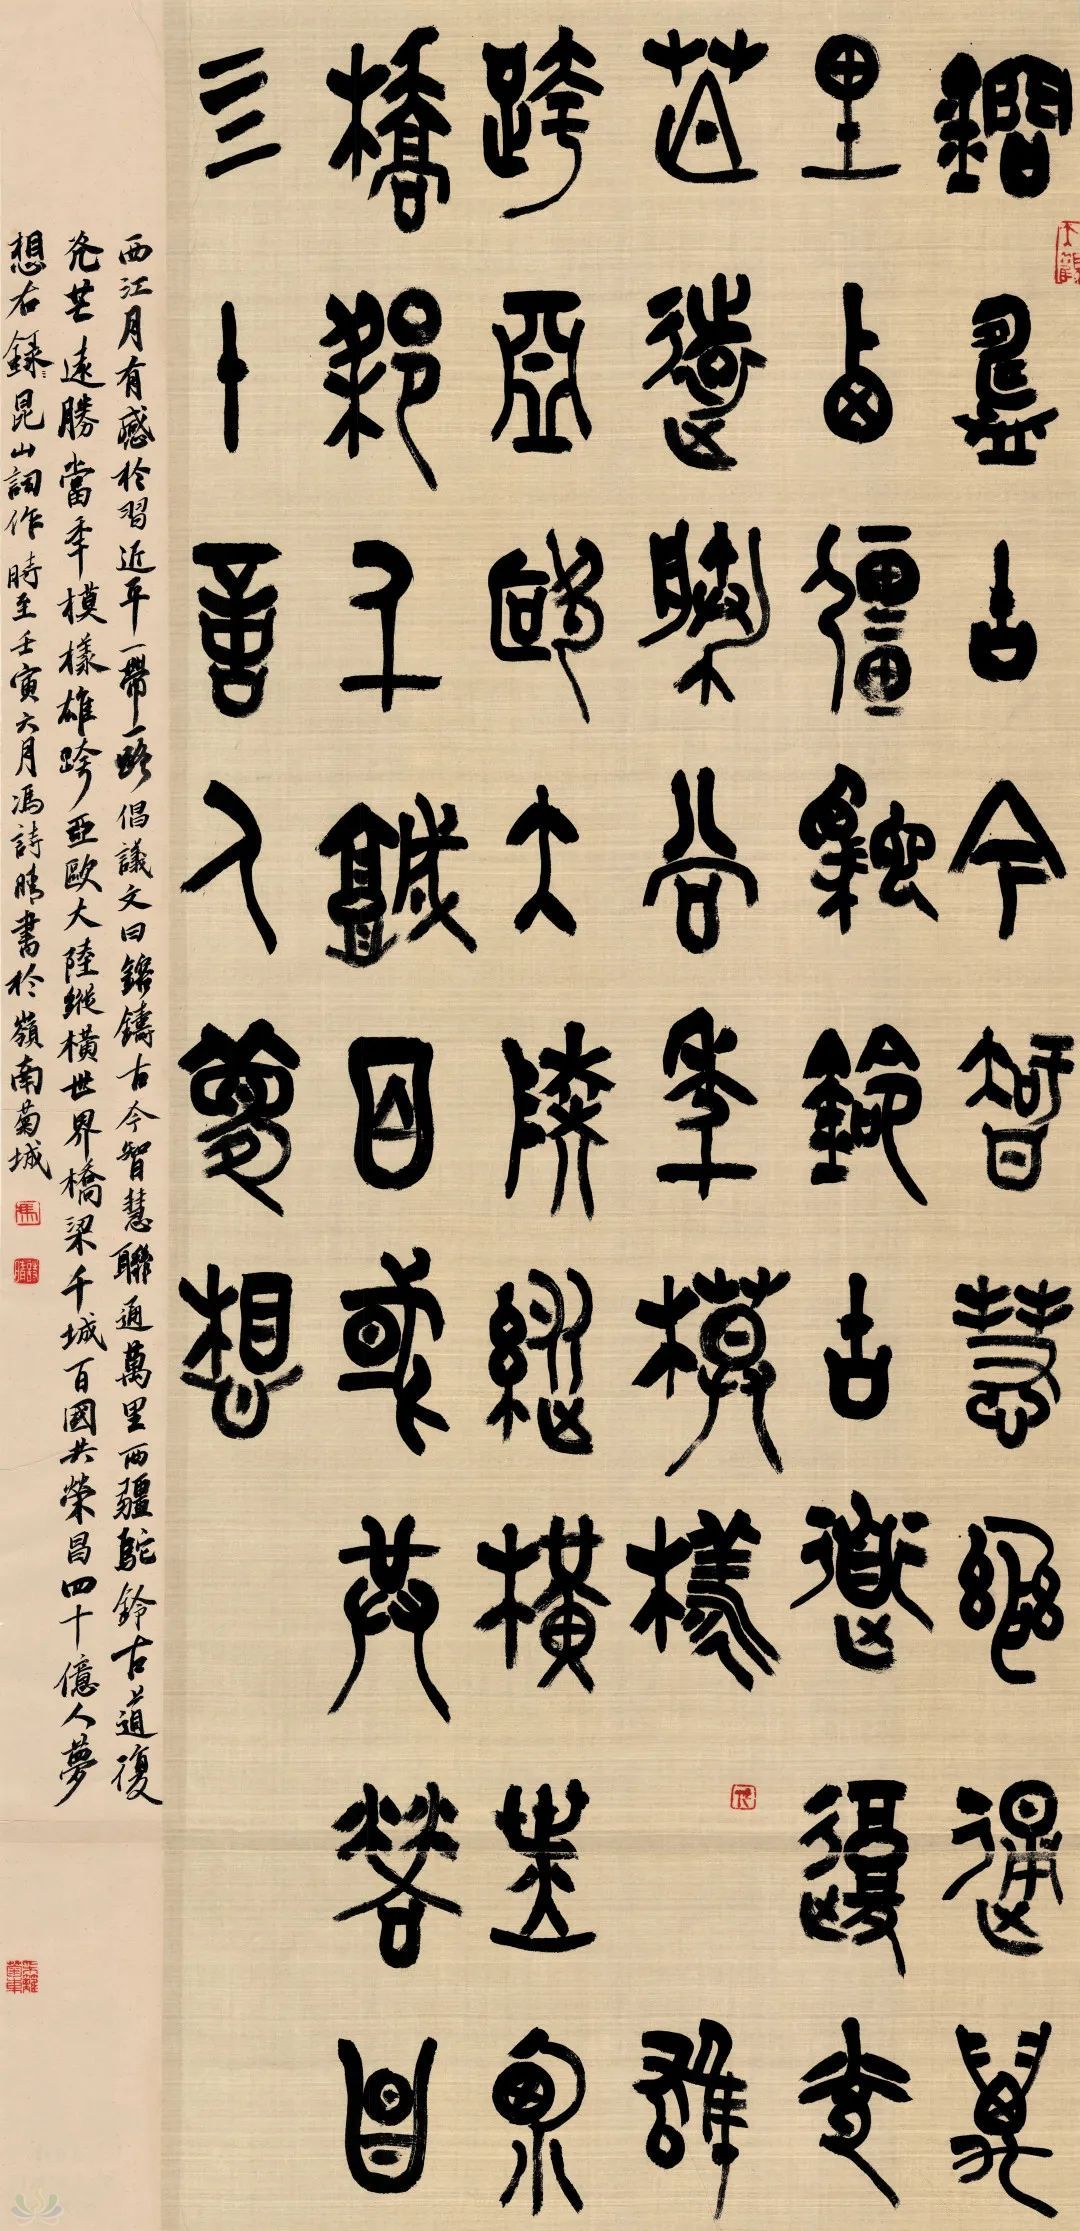 鎔鑄古今智慧聯通萬
里西疆駝鈴古道復光
芒遠勝當年模樣雄
跨亞歐大陸縱橫世界
橋梁千城百國共榮昌
四十億人夢想
西江月有感於習近平一帶一路倡議文曰鎔鑄古今智慧聯通萬里西疆駝鈴古道復
光芒遠勝當年模樣雄跨亞歐大陸縱橫世界橋梁千城百國共榮昌四十億人夢
想右錄昆山詞作時至壬寅六月馮詩晴書於嶺南菊城
馮
詩晴